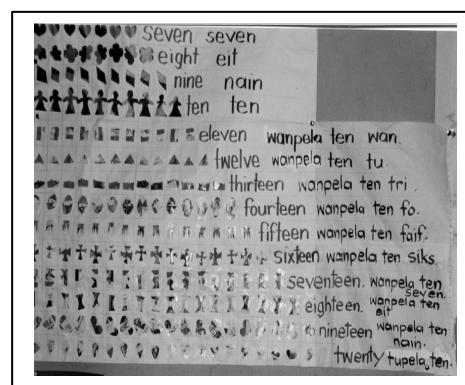 seven seven
eight eit
nine nain
ten ten
eleven wanpela ten wan.
twelve wanpela ten tu.
thirteen wanpela ten tri.
fourteen wanpela ten fo.
fifteen wanpela ten faif.
sixteen wanpela ten siks.
seventeen. wanpela ten
seven.
eighteen. wanpela ten
eit
nineteen wanpela ten
nain.
twenty tupela ten.